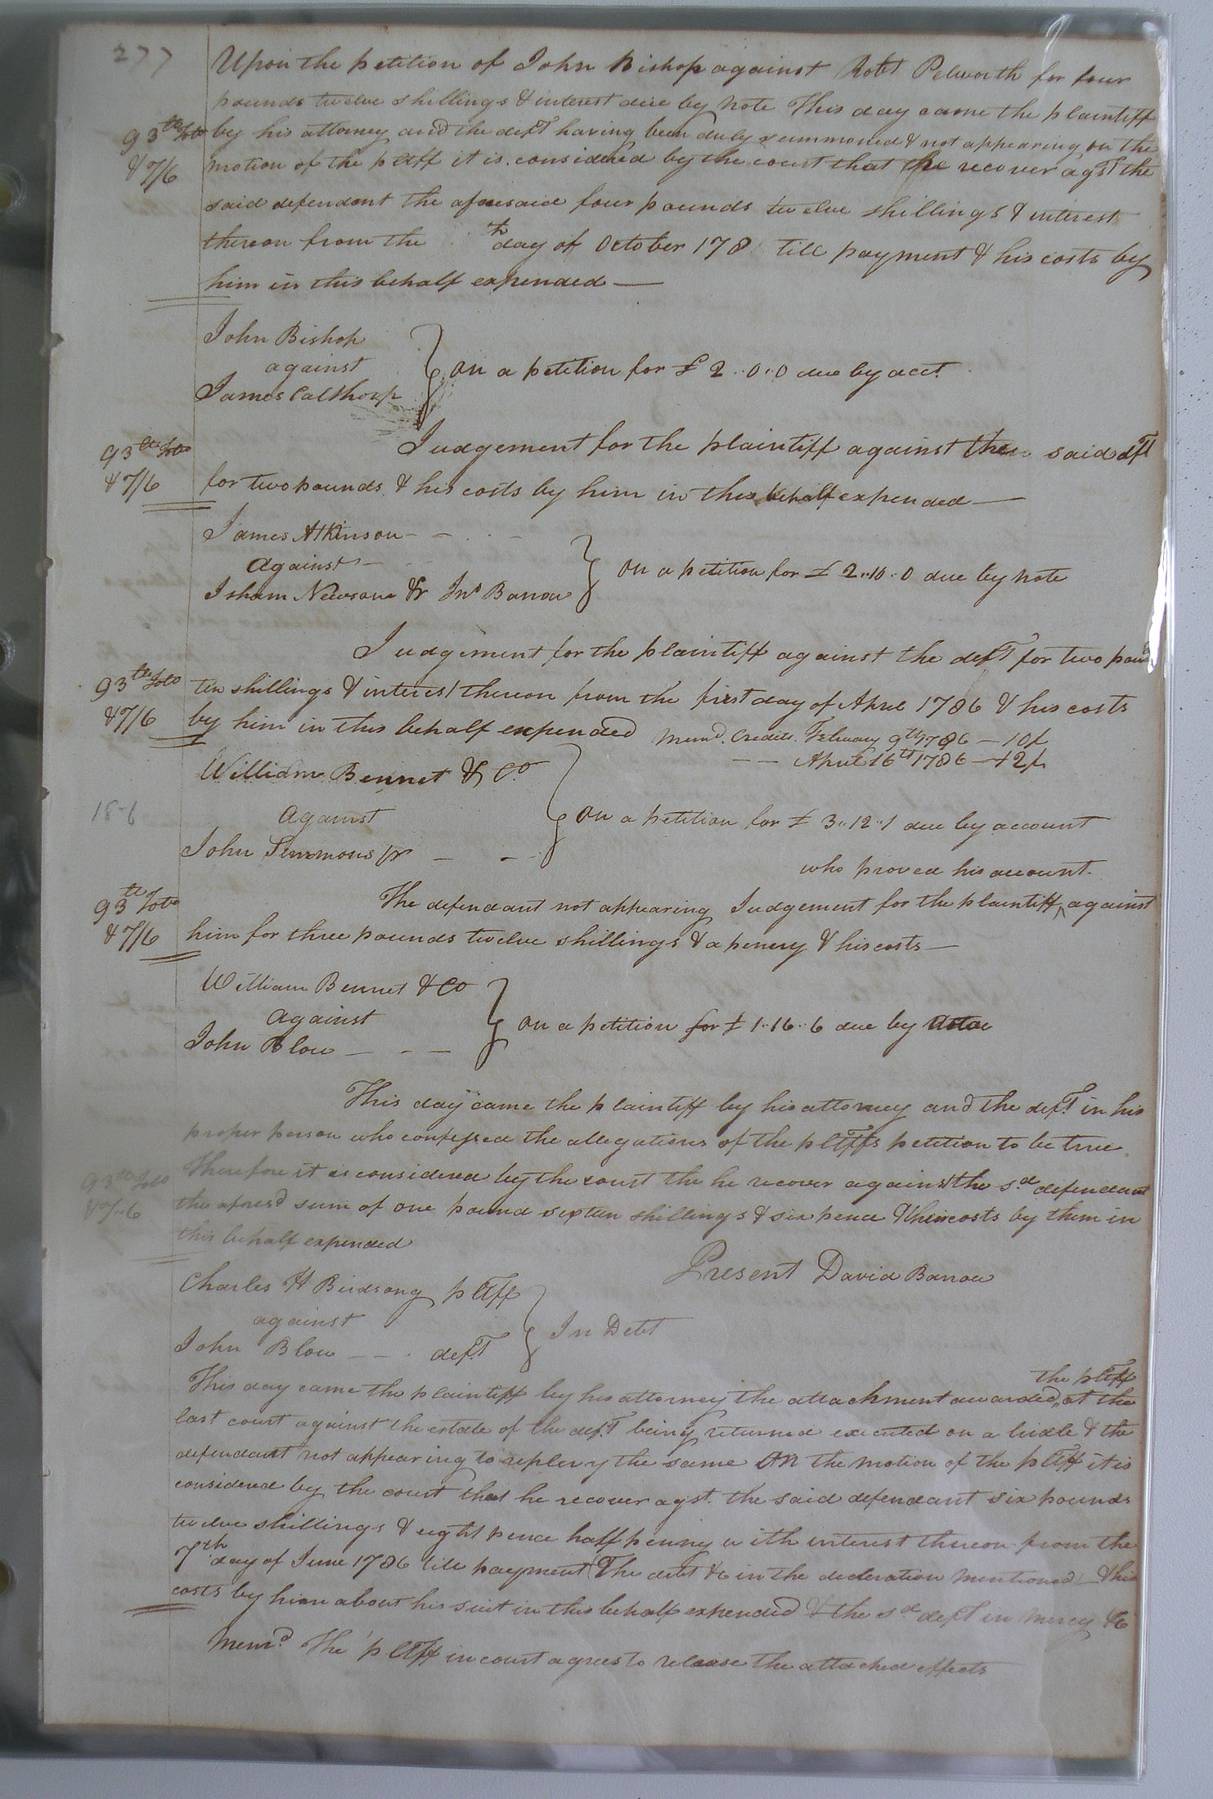 277
Upon the petition of John Bishop against Robt Pelworth for four
pounds twelve shillings & interest due by note This day came the plaintiff
93 lb Tobo by his attorney and the deft having been duly summoned & not appearing on the
& 7/6 motion of the pltff it is considered by the court that he recover agst the
said defendant the aforesaid four pounds twelve shillings & interest
thereon from the th day of October 178 till payment & his costs by
him in this behalf expended —
John Bishop
against
James Calthorp
on a petition for £ 2..0..0 due by acct.
93 lb Tobo Judgement for the plaintiff against the said deft
& 7/6 for two pounds & his costs by him in this behalf expended —
James Atkinson - -
against -
Isham Newsom & Jno Barrow
on a petition for £ 2..10..0 due by note
Judgement for the plaintiff against the deft for two pound
93 lb Tobo ten shillings & interest thereon from the first day of April 1786 & his costs
& 7/6 by him in this behalf expended Memd. Credits. February 9th 1786 — 10/
-- April 16th 1786 — 12/
William Bennet & Co
18-6
against
John Simmons jr — -
on a petition for £ 3..12..1 due by account
who proved his account.
93 lb Tobo The defendant not appearing Judgement for the plaintiff ^ against
& 7/6 him for three pounds twelve shillings & a penny & his costs —
William Bennet & Co
against
John Blow — - —
on a petition for £ 1..16..6 due by
This day came the plaintiff by his attorney and the deft in his
proper person who confessed the allegations of the pltffs petition to be true
93 lb Tobo Therefore it is considered by the court the he recover against the sd defendant
the aforesd sum of one pound sixteen shillings & six pence & their costs by them in
this behalf expended
Present David Barrow
Charles H Birdsong pltff
against
John Blow — - . deft
In Debt
the pltff
This day came the plaintiff by his attorney the attachment awarded ^ at the
last court against the estate of the deft being returned executed on a bridle & the
defendant not appearing to replevy the same On the motion of the pltff it is
considered by the court that he recover agst. the said defendant six pounds
twelve shillings & eight pence half penny with interest thereon from the
7th day of June 1786 till payment (The debt &c in the decleration mentioned) & his
costs by him about his suit in this behalf expended & the sd deft in mercy &c
Memd. The pltff in court agrees to release the attached effects